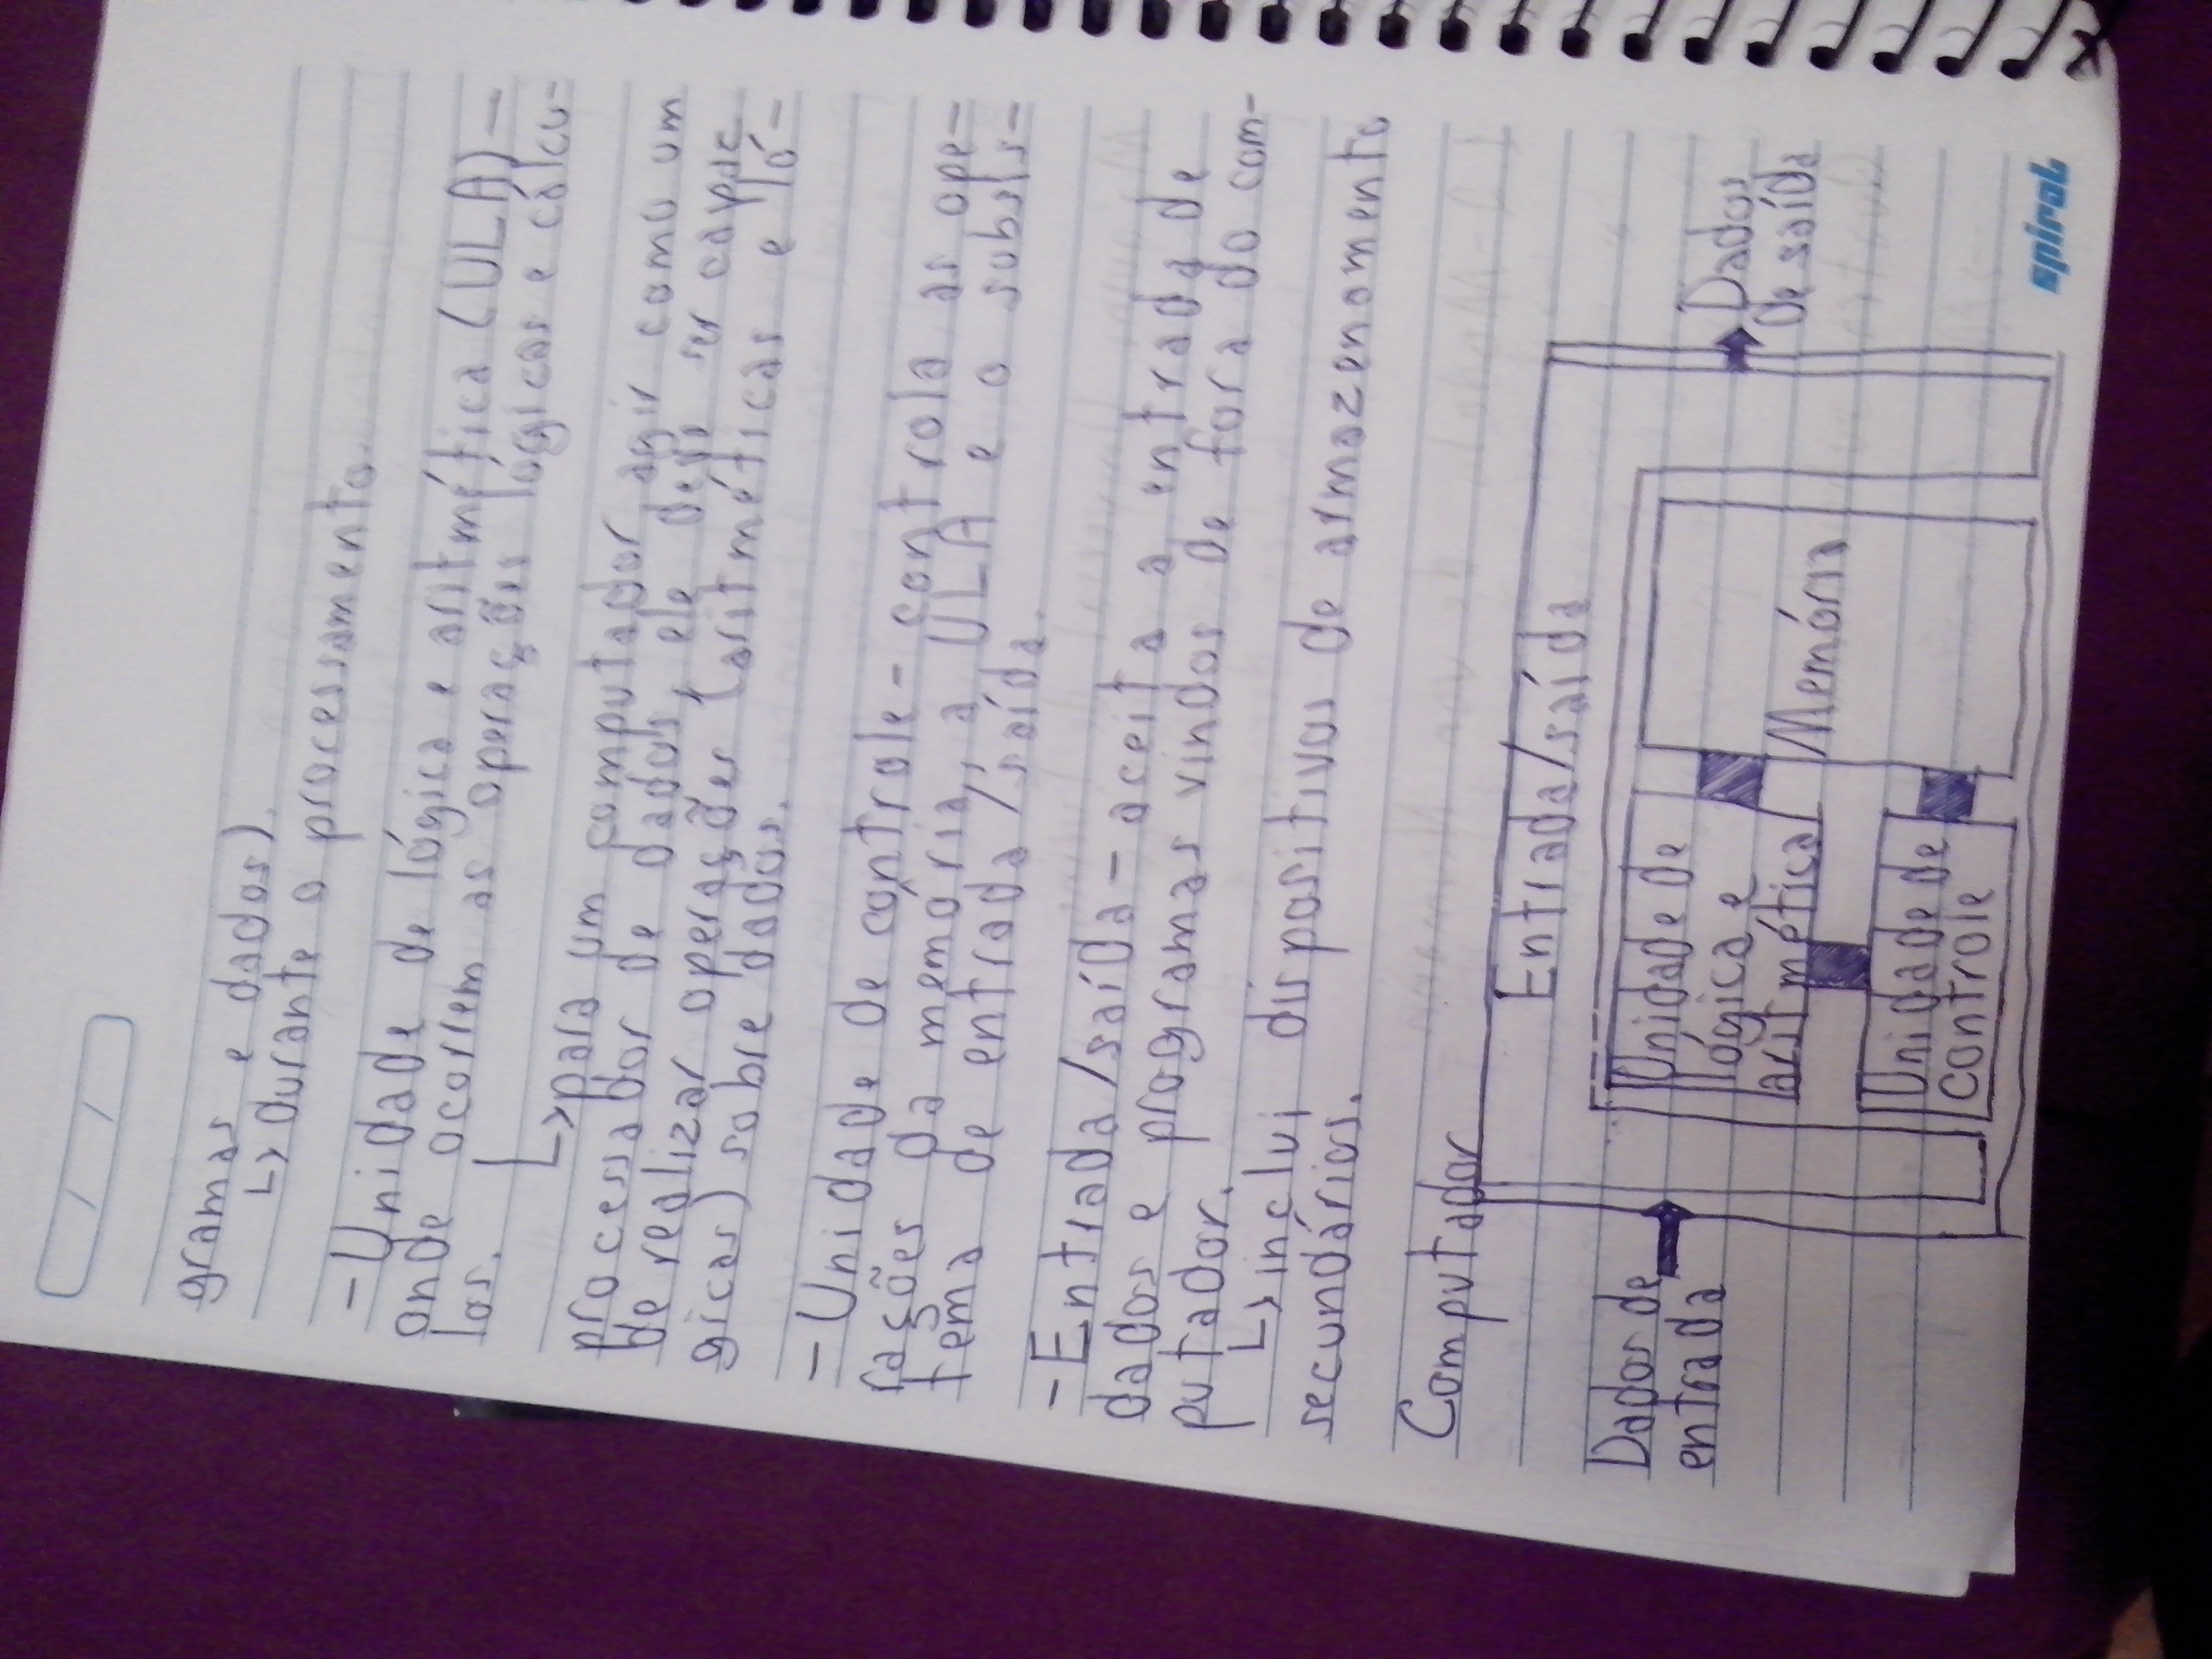 gramas e dados).
↳ durante o processamento.
- Unidade de lógica e aritmética (ULA) -
onde ocorrem as operações lógicas e cálcu-
los.
↳ para um computador agir como um
processador de dados, ele deve ser capaz
de realizar operações (aritméticas e ló-
gicas) sobre dados.
- Unidade de controle - controla as ope-
rações da memória, a ULA e o subsis-
tema de entrada/saída.
- Entrada/saída - aceita a entrada de
dados e programas vindos de fora do com-
putador.
↳ inclui dispositivos de armazenamento
secundários.
Computador
Entrada/saída
Dados de
entrada
Unidade de
lógica e
aritmética
Memória
Unidade de
controle
Dados
de saída
spiral